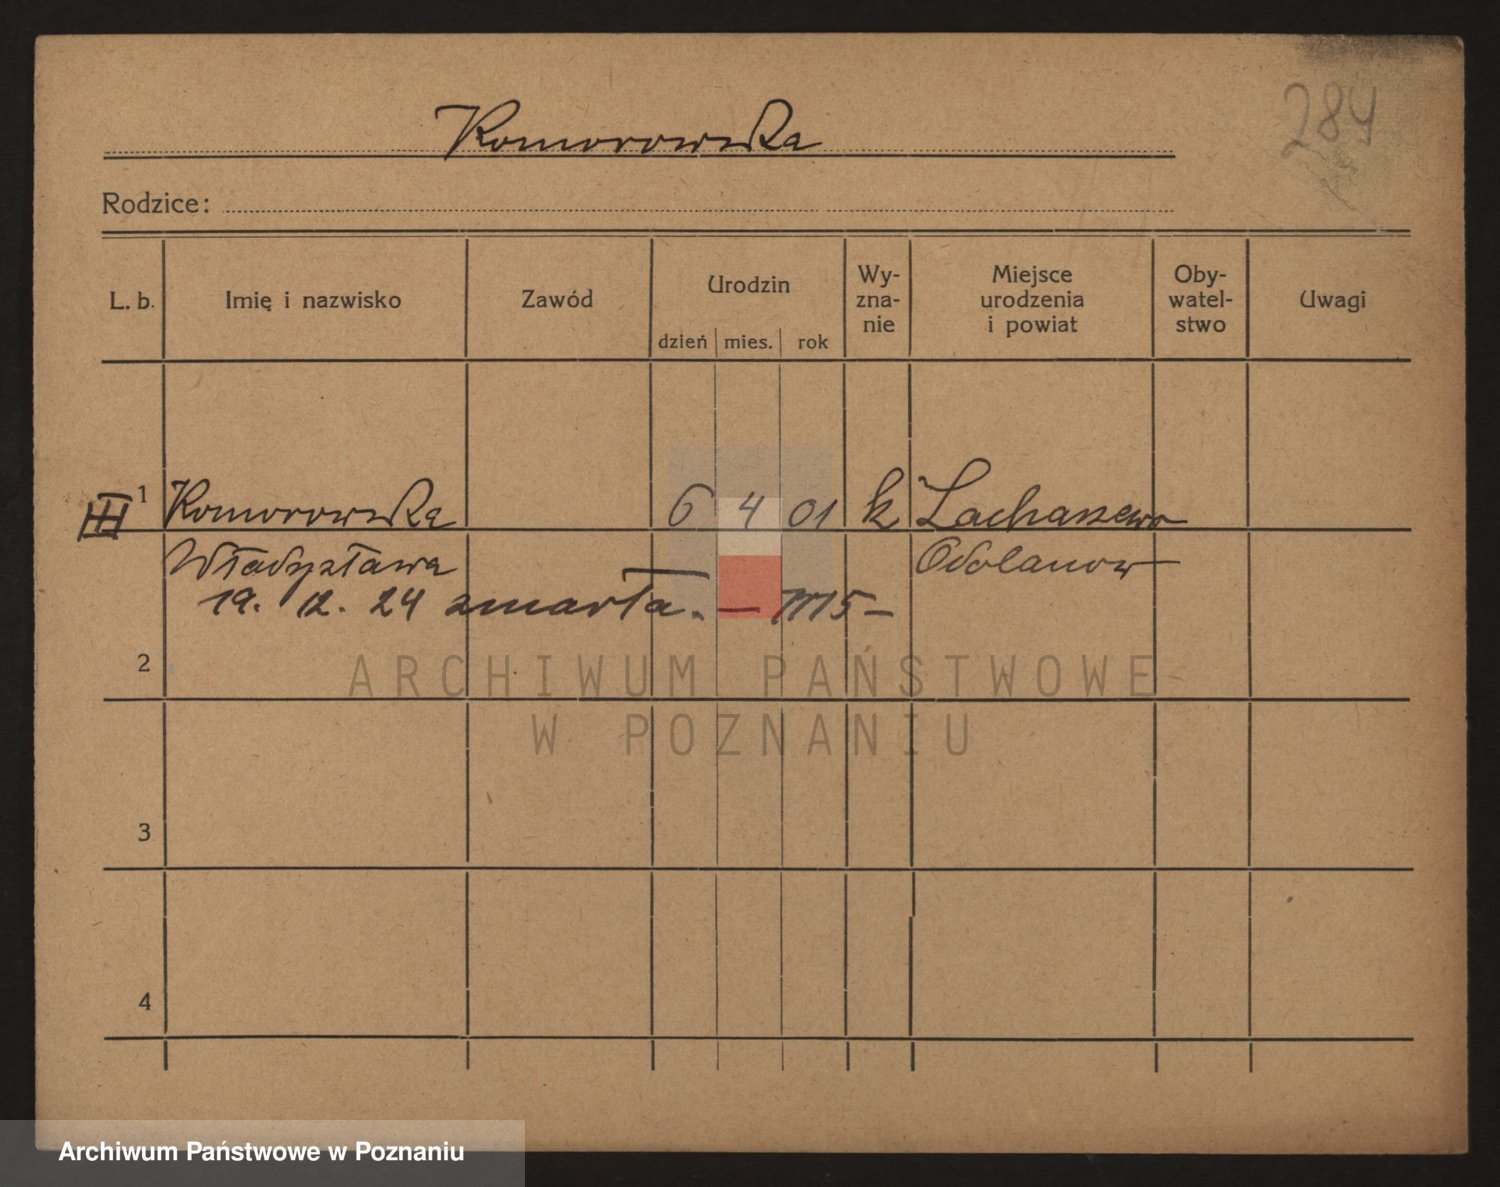 Komorowska
284
Rodzice:
L. b. Imię i nazwisko Zawód Urodzin dzień mies. rok Wy-zna-nie Miejsce urodzenia i powiat Oby-watel-stwo Uwagi
III 1 Komorowska 6 4 01 k Lachaszewo
Władysława Odolanow
19. 12. 24 zmarła. —
2
ARCHIWUM PAŃSTWOWE
W POZNANIU
3
4
Archiwum Państwowe w Poznaniu